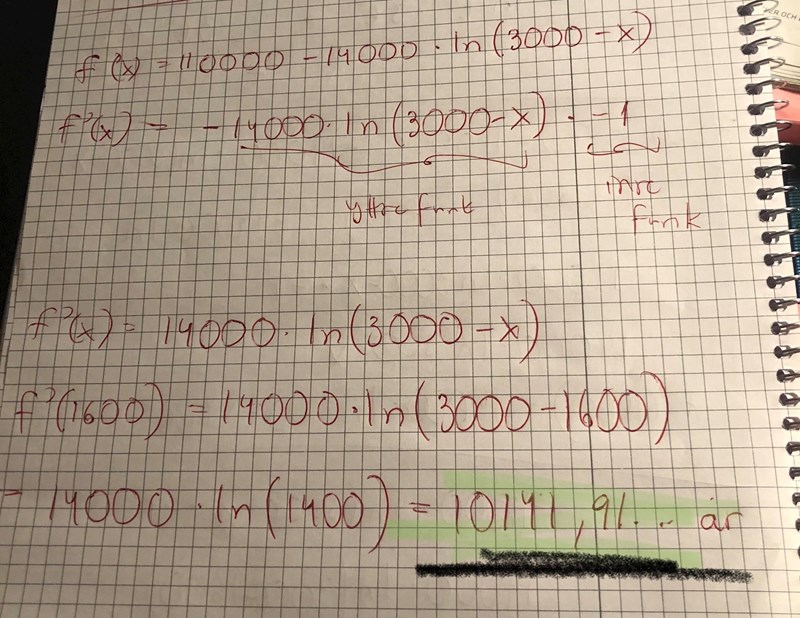 f(x) = 110000 - 14000 · ln(3000-x)
f'(x) = -14000 · ln(3000-x) · -1
yttre funk
inre
funk
f'(x) = 14000 · ln(3000-x)
f'(1600) = 14000 · ln(3000-1600)
= 14000 · ln(1400) = 10141,91... år